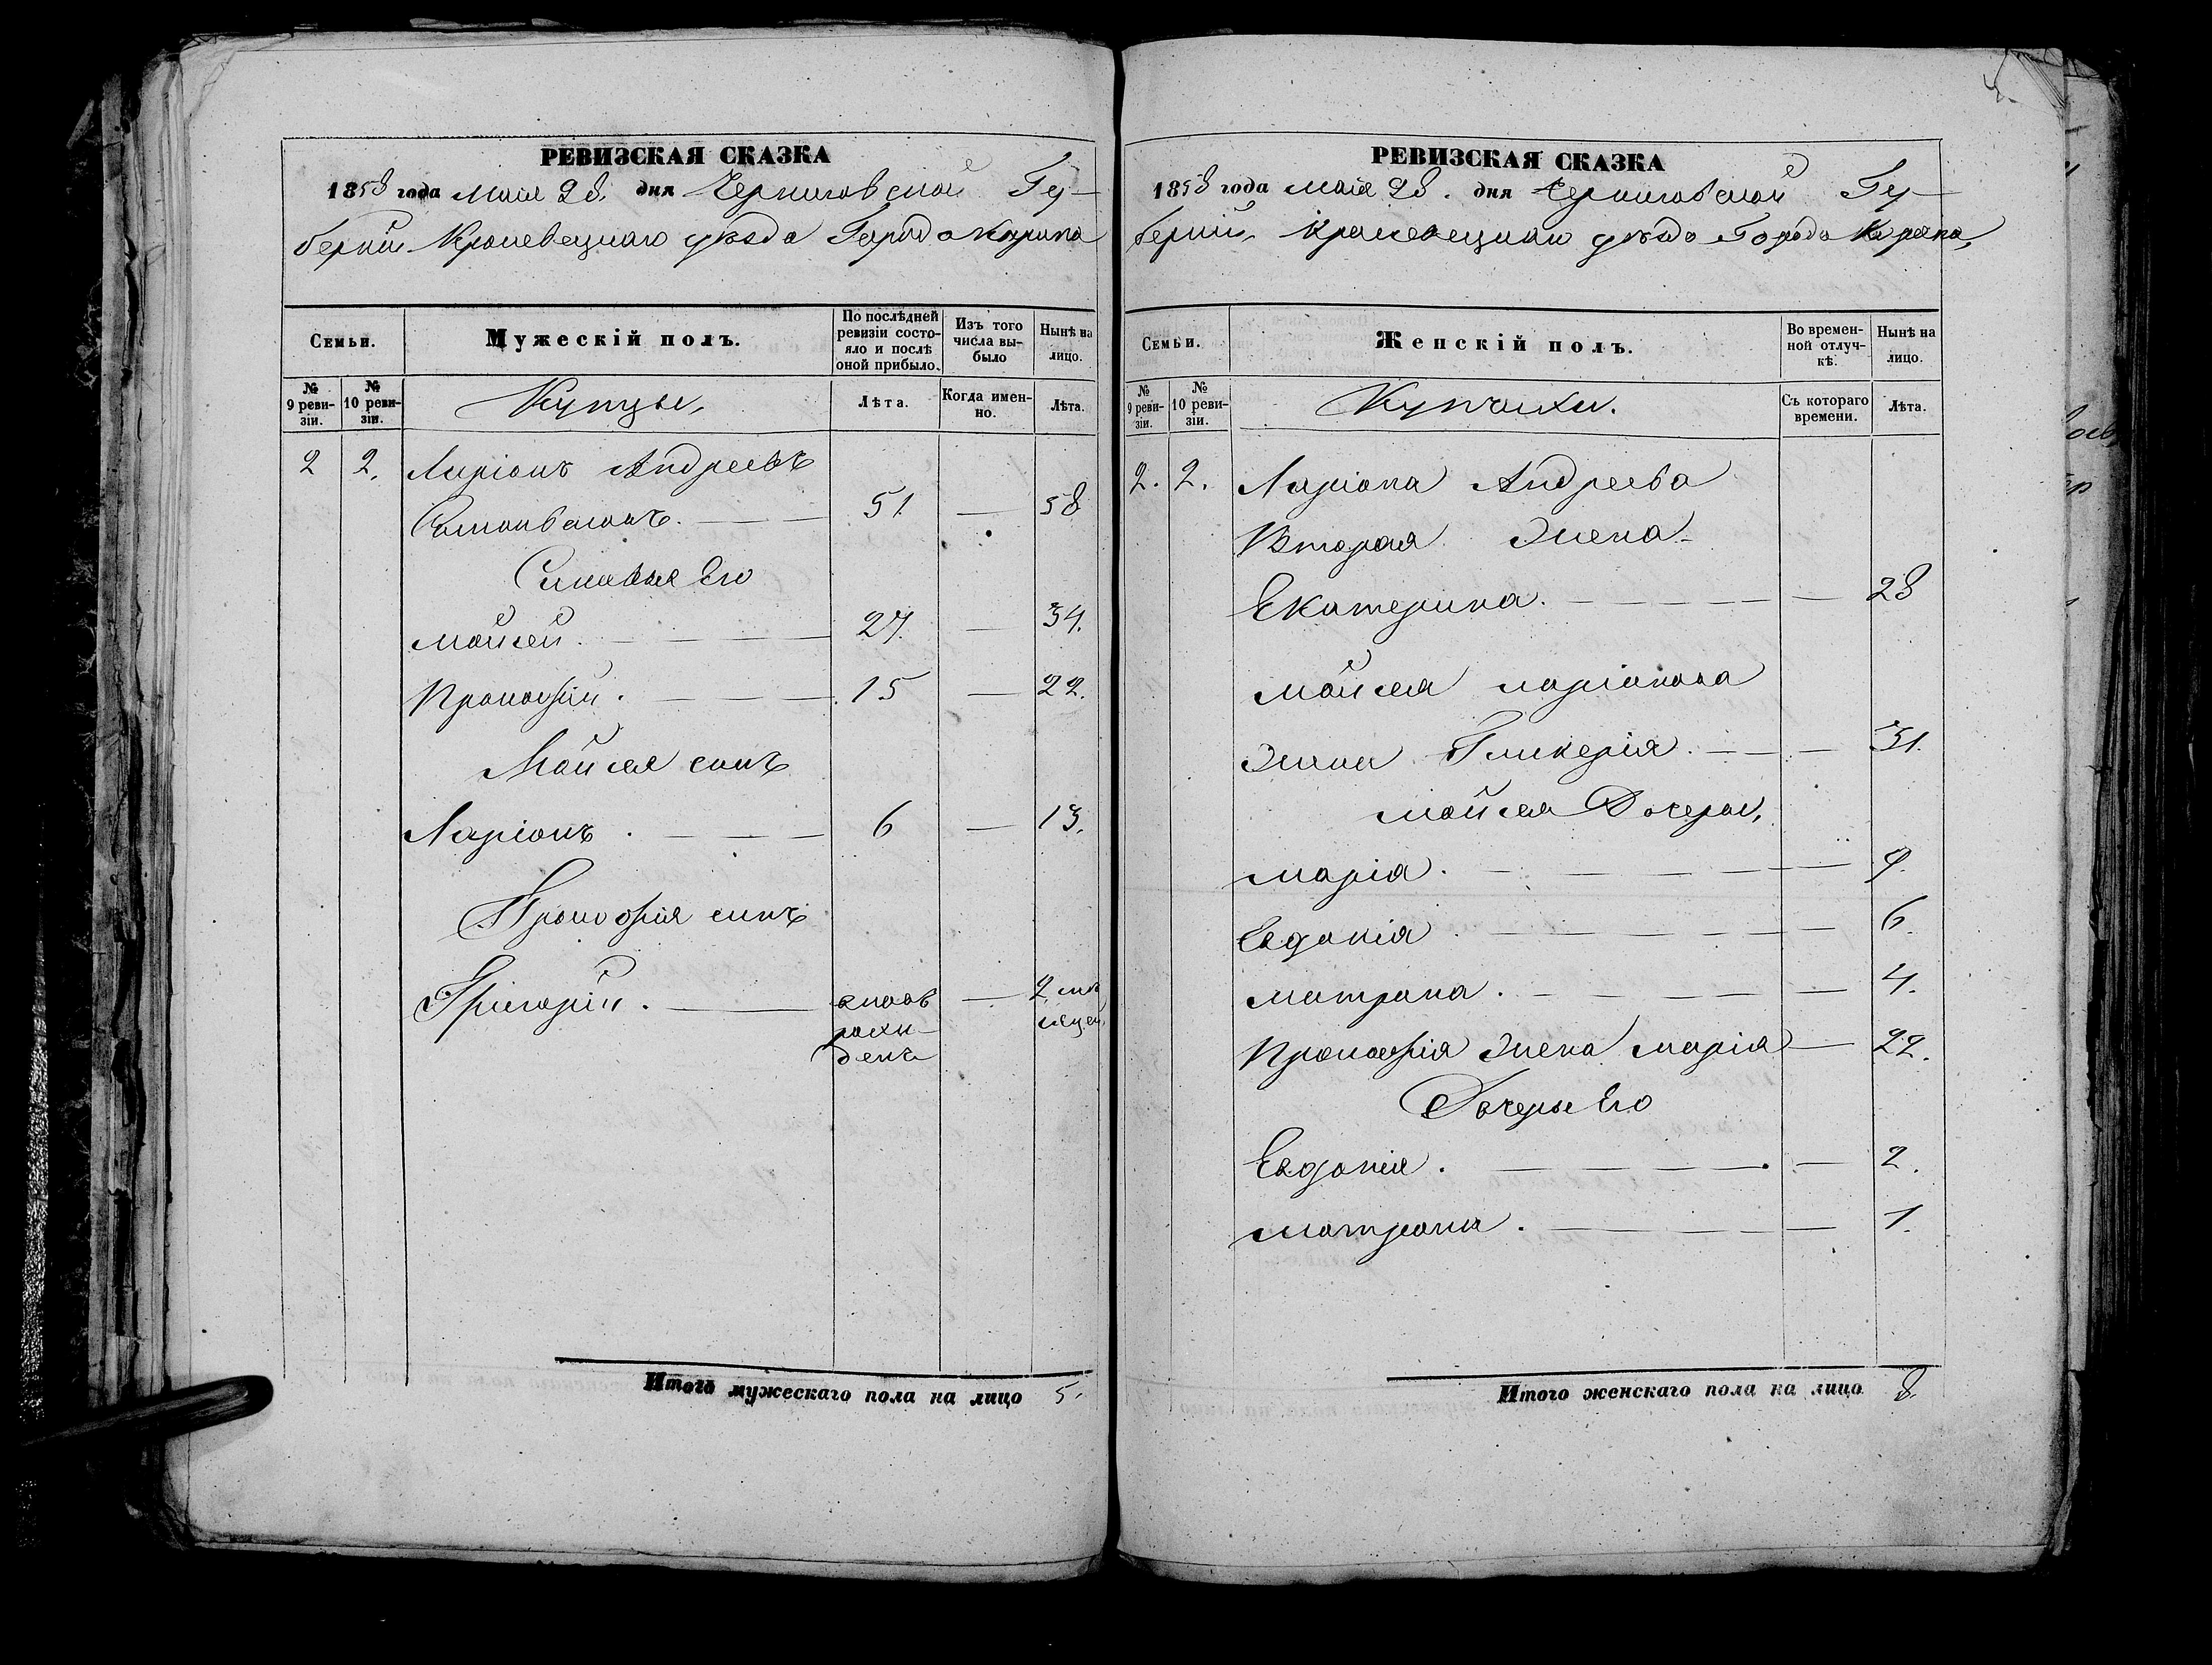 РЕВИЗСКАЯ СКАЗКА
1858 года мая 28. дня Черниговской Гу-
берніи Кролевецкаго уѣзда Города Коропа
Семьи.
Мужескій полъ.
По послѣдней ревизіи состо-
яло и послѣ оной прибыло.
Изъ того числа вы-
было
Нынѣ на лицо.
№ 9 реви-
зіи.
№ 10 реви-
зіи.
Купцы,
Лѣта.
Когда имен-
но.
Лѣта.
2 2. Ларіонъ Андреевъ
51. — 58
Сыновья Его
Мойсей. — 27. — 34.
Прокофій. — 15 — 22.
Мойсея сынъ
Ларіонъ. — 6 — 13.
Прокофія сынъ
Григорій. — вновь — 2 мѣ
рож- сяцей,
денъ
Итого мужескаго пола на лицо 5.
РЕВИЗСКАЯ СКАЗКА
1858 года мая 28. дня Черниговской Гу-
берніи, Кролевецкаго уѣзда Города Коропа,
Семьи.
Женскій полъ.
Во времен-
ной отлуч-
кѣ.
Нынѣ на лицо.
№ 9 реви-
зіи.
№ 10 реви-
зіи.
Купчихи.
Съ котораго времени.
Лѣта.
2. 2. Ларіона Андреева
Вторая Жена
Екатерина. — 28
Мойсея Ларіонова
Жена Гликерія. — 31.
Мойсея Дочеры,
Марія. — 9.
Евдокія — 6.
Матрона. — 4.
Прокофія Жена Марія — 22.
Дочеры Его
Евдокія. — 2.
Матрона. — 1.
Итого женскаго пола на лицо 8.